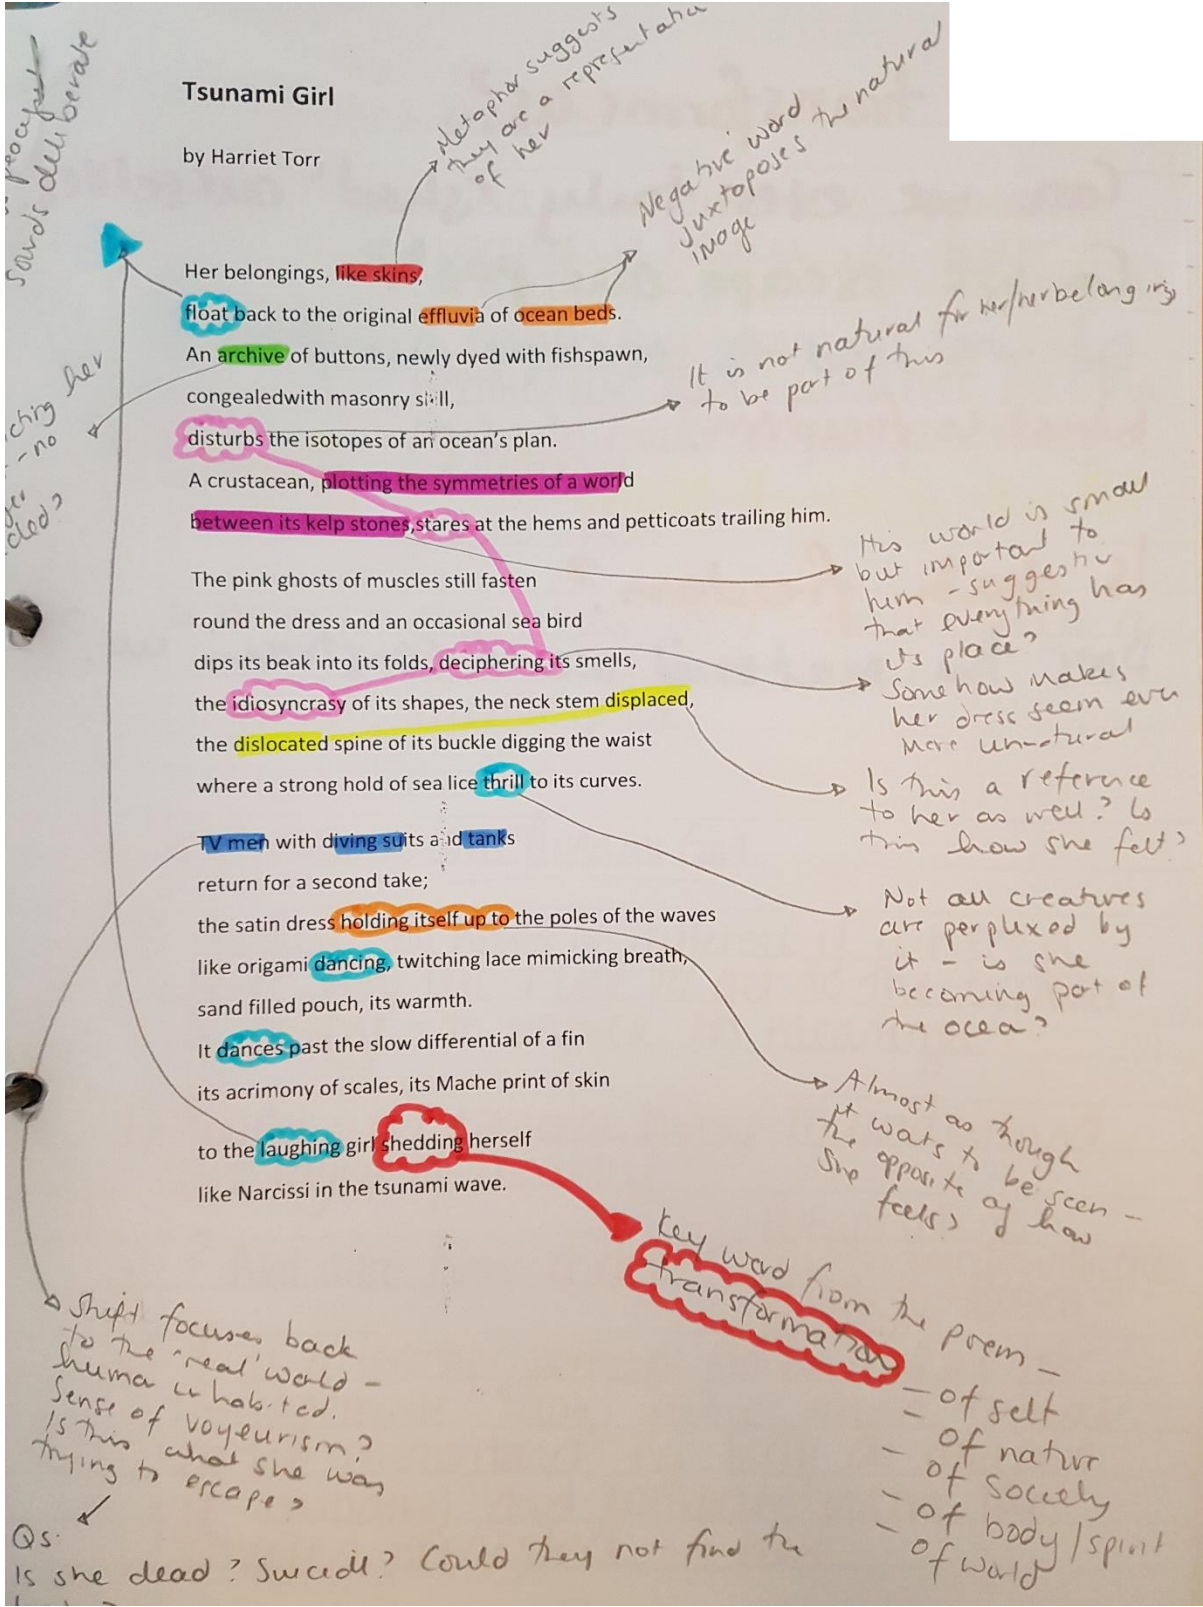 peaceful
sounds deliberate
Metaphor suggests
they are a representation
of her
Negative word
juxtaposes the natural
image
Tsunami Girl
by Harriet Torr
Her belongings, like skins,
float back to the original effluvia of ocean beds.
An archive of buttons, newly dyed with fishspawn,
congealedwith masonry skill,
disturbs the isotopes of an ocean's plan.
A crustacean, plotting the symmetries of a world
between its kelp stones,stares at the hems and petticoats trailing him.
The pink ghosts of muscles still fasten
round the dress and an occasional sea bird
dips its beak into its folds, deciphering its smells,
the idiosyncrasy of its shapes, the neck stem displaced,
the dislocated spine of its buckle digging the waist
where a strong hold of sea lice thrill to its curves.
TV men with diving suits and tanks
return for a second take;
the satin dress holding itself up to the poles of the waves
like origami dancing, twitching lace mimicking breath,
sand filled pouch, its warmth.
It dances past the slow differential of a fin
its acrimony of scales, its Mache print of skin
to the laughing girl shedding herself
like Narcissi in the tsunami wave.
It is not natural for her/her belongings
to be part of this
ching her
- no
ded?
His world is small
but important to
him - suggestive
that everything has
its place?
Somehow makes
her dress seem even
more unnatural
Is this a reference
to her as well? Is
this how she felt?
Not all creatures
are perplexed by
it - is she
becoming part of
the ocea?
Almost as though
it wats to be seen -
the opposite of how
she feels?
Key word from the poem -
transformation
- of self
- of nature
- of society
- of body/spirit
- of world
Shift focuses back
to the 'real' world -
human inhabited.
Sense of voyeurism?
Is this what she was
trying to escape?
Qs:
Is she dead? Suicide? Could they not find the